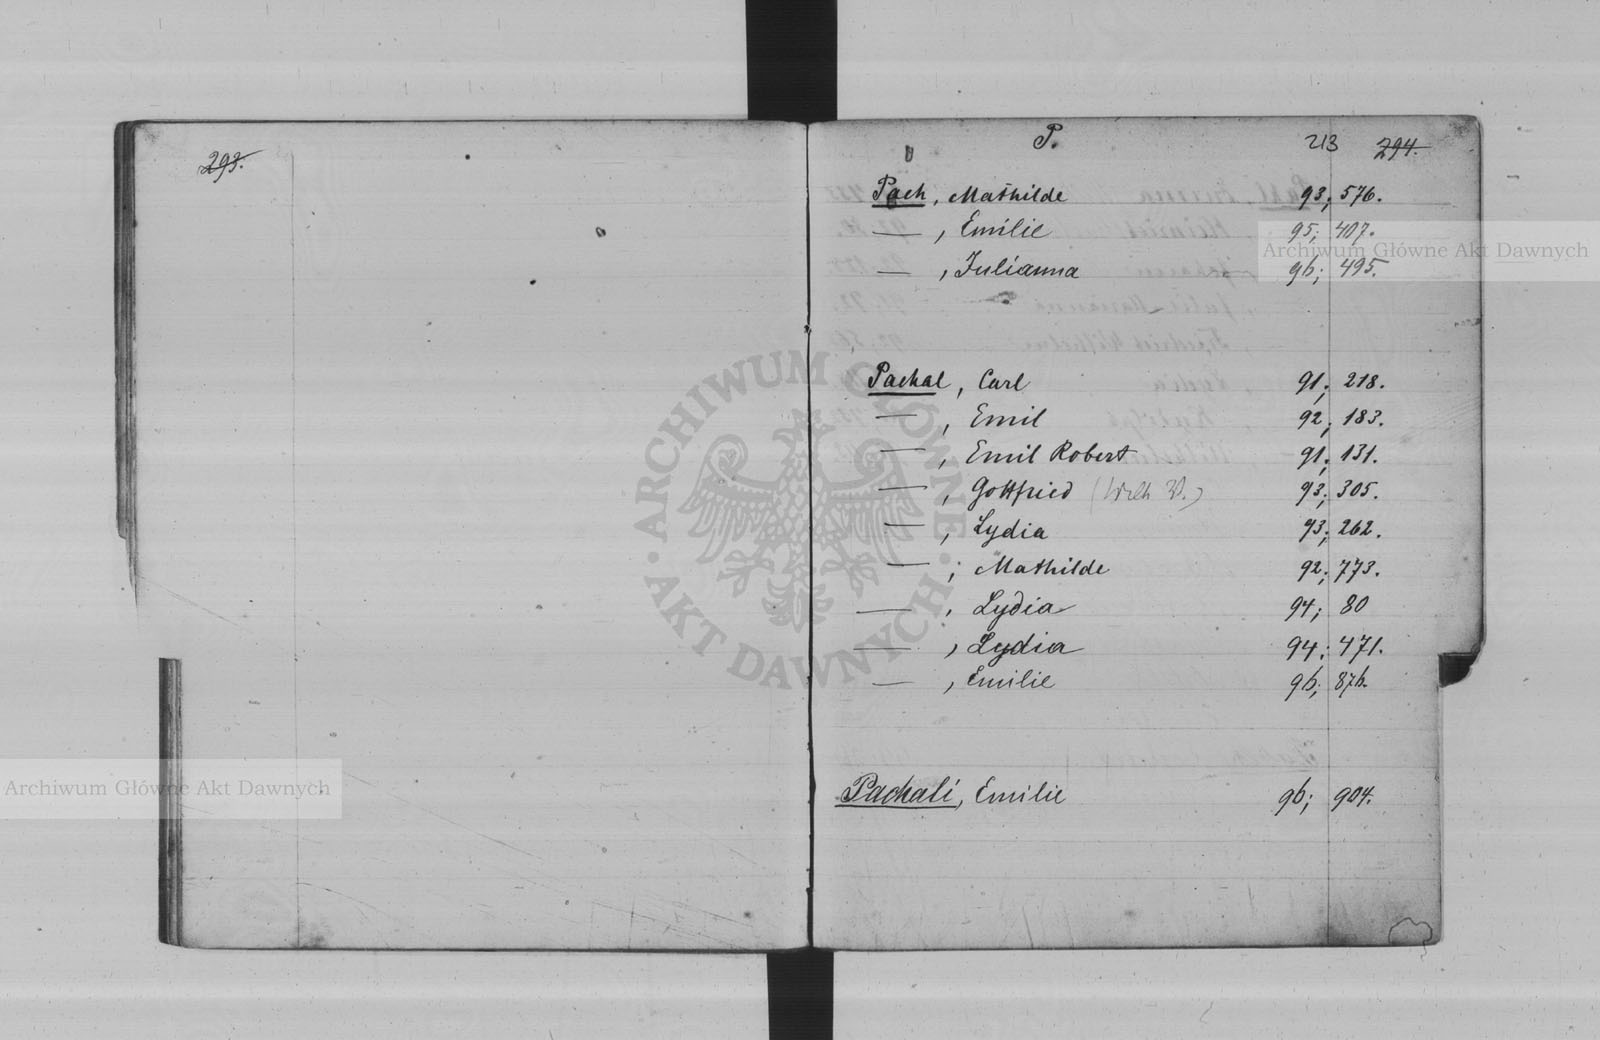 293.
P.
213 294.
Pach, Mathilde 93; 576.
— , Emilie 95; 407.
— , Julianna 96; 495.
Pachal, Carl 91; 218.
— , Emil 92; 183.
— , Emil Robert 91; 131.
— , Gottfried 93; 305.
— , Lydia 93; 262.
— ; Mathilde 92; 773.
— , Lydia 94; 80
— , Lydia 94; 471.
— , Emilie 96; 876.
Pachali, Emilie 96; 904.
Archiwum Główne Akt Dawnych
ARCHIWUM GŁÓWNE · AKT DAWNYCH ·
Archiwum Główne Akt Dawnych